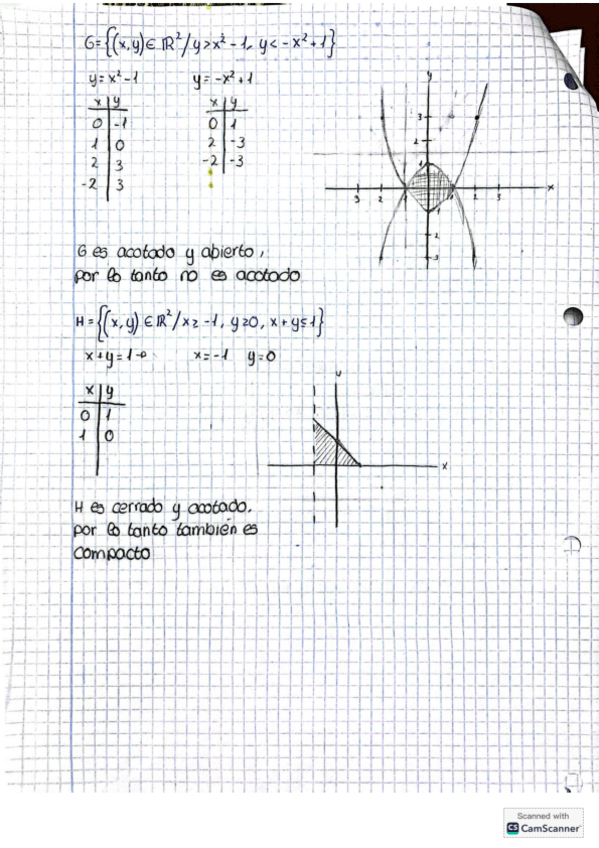 G={(x,y)∈ℝ²/y>x²-1, y<-x²+1}
y=x²-1 y=-x²+1
x y x y
0 -1 0 1
1 0 2 -3
2 3 -2 -3
-2 3
y
3
2
1
3 2 1 1 2 3 x
1
2
3
G es acotado y abierto,
por lo tanto no es acotado
H={(x,y)∈ℝ²/x≥-1, y≥0, x+y≤1}
x+y=1→ x=-1 y=0
x y
0 1
1 0
y
x
H es cerrado y acotado.
por lo tanto también es
compacto
Scanned with
CS CamScanner